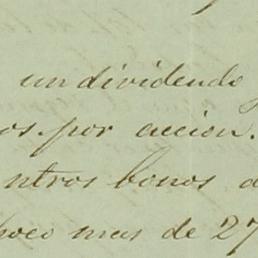 un dividendo
os por accion.
ntros bonos a
poco mas de 27